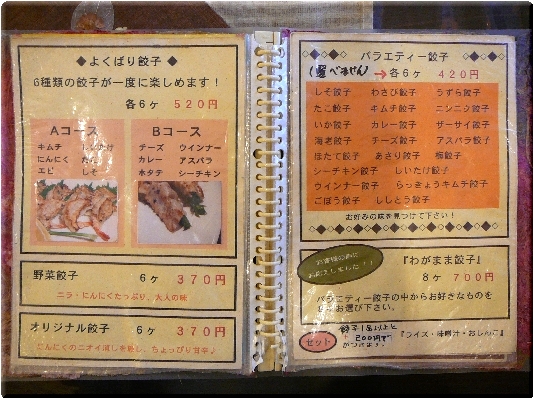 ◆よくばり餃子◆
6種類の餃子が一度に楽しめます!
各6ヶ 520円
Aコース Bコース
キムチ しいたけ チーズ ウインナー
にんにく カレー アスパラ
エビ しそ ホタテ シーチキン
野菜餃子 6ヶ 370円
ニラ・にんにくたっぷり、大人の味
オリジナル餃子 6ヶ 370円
にんにくのニオイ消しを施し、ちょっぴり甘辛♪
バラエティー餃子
(選べません →各6ヶ 420円
しそ餃子 わさび餃子 うずら餃子
たこ餃子 キムチ餃子 ニンニク餃子
いか餃子 カレー餃子 ザーサイ餃子
海老餃子 チーズ餃子 アスパラ餃子
ほたて餃子 あさり餃子 梅餃子
シーチキン餃子 しいたけ餃子
ウインナー餃子 らっきょうキムチ餃子
ごぼう餃子 ししとう餃子
お好みの味を見つけて下さい!
お客様の声に
お応えしました!!
『わがまま餃子』
8ヶ 700円
バラエティー餃子の中からお好きなものを
お選び下さい。
セット
餃子1皿以上と
200円で
『ライス・味噌汁・おしんこ』